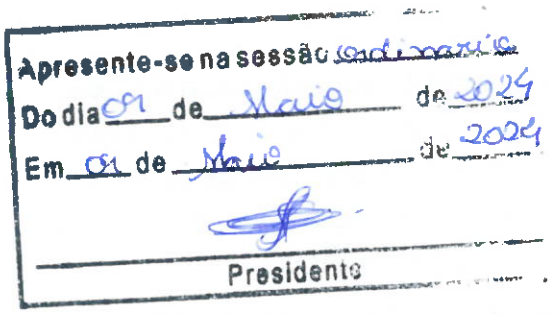 Apresente-se na sessão ordinaria
Do dia 09 de Maio de 2024
Em 09 de Maio de 2024
Presidente